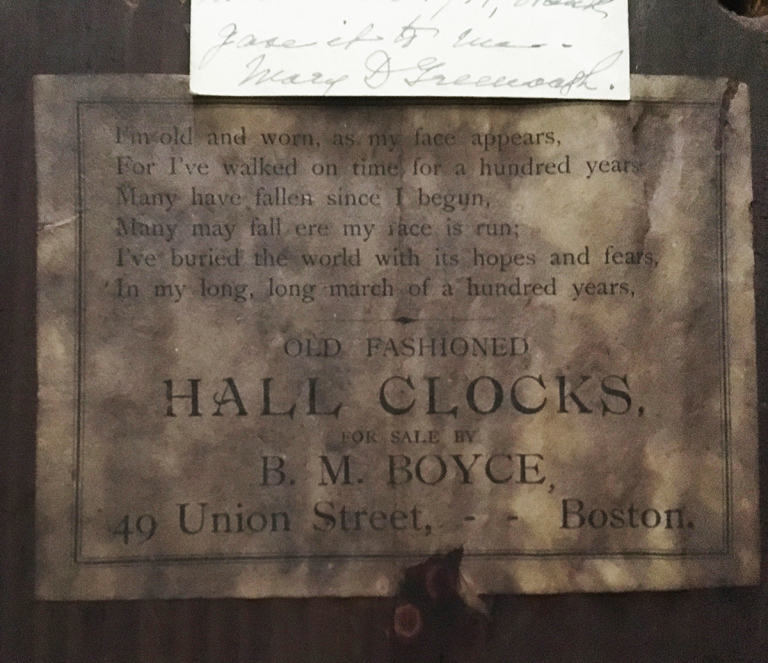 gave it to me -
Mary D Greenough.
I'm old and worn, as my face appears,
For I've walked on time for a hundred years
Many have fallen since I begun,
Many may fall ere my race is run;
I've buried the world with its hopes and fears,
In my long, long march of a hundred years,
OLD FASHIONED
HALL CLOCKS,
FOR SALE BY
B. M. BOYCE,
49 Union Street, - - Boston.